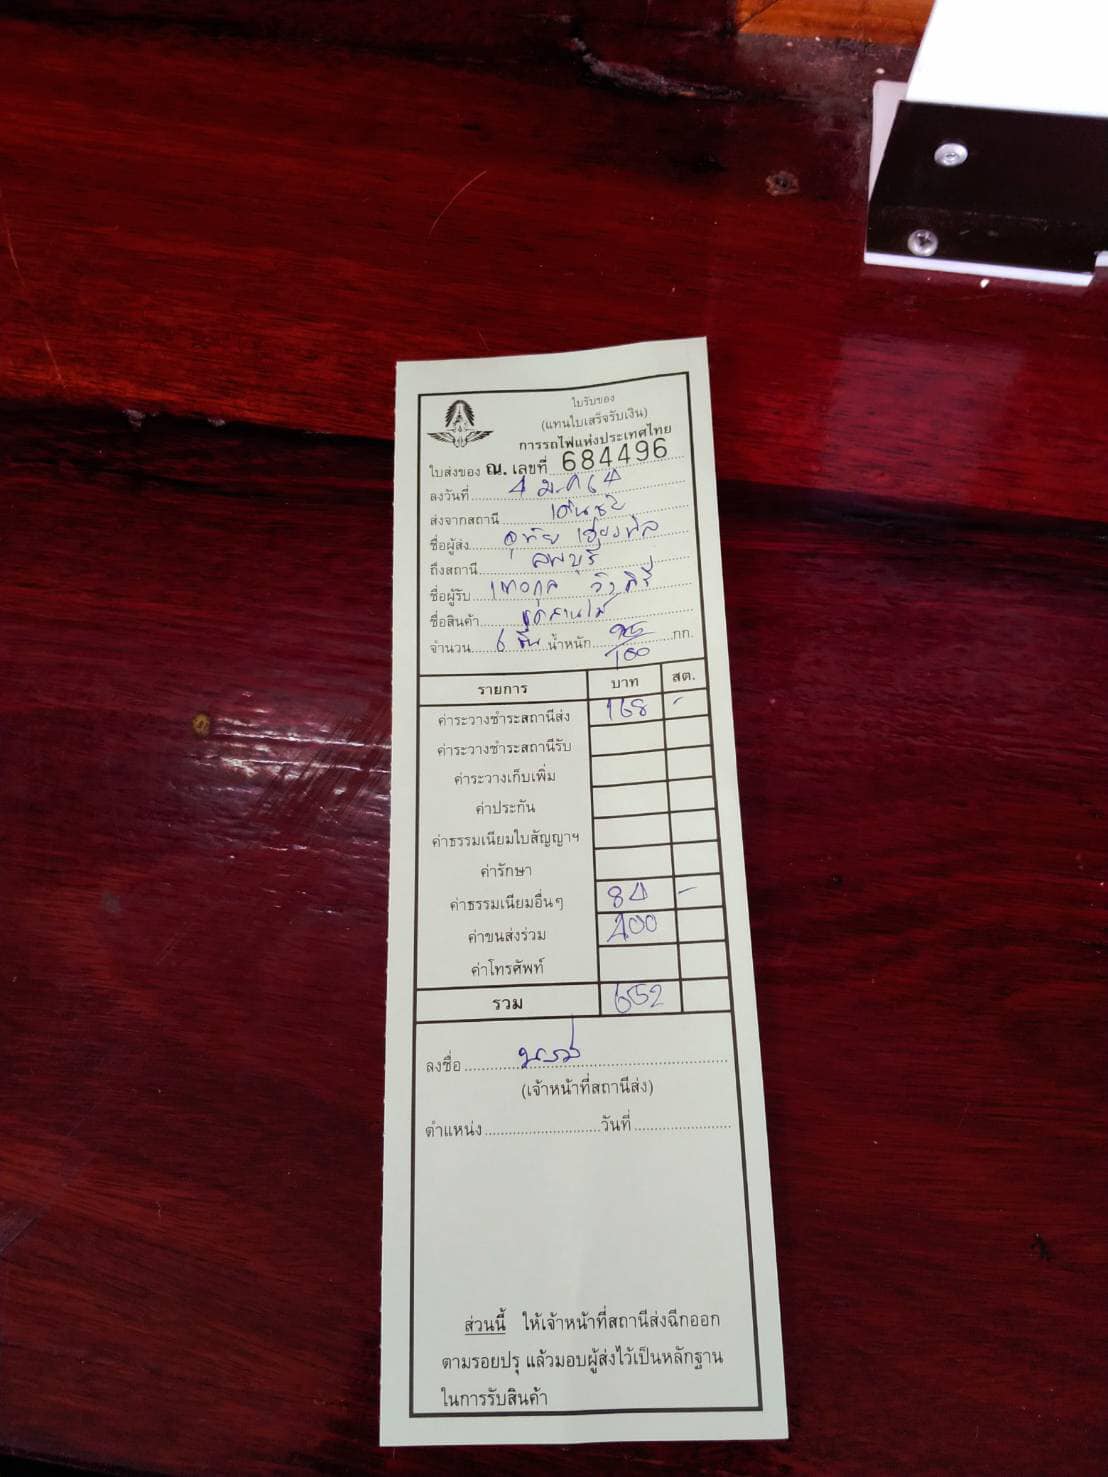 ใบรับของ
(แทนใบเสร็จรับเงิน)
การรถไฟแห่งประเทศไทย
ใบส่งของ ณ. เลขที่ 684496
ลงวันที่ 4 ม.ค 64
ส่งจากสถานี เด่นชัย
ชื่อผู้ส่ง อุทัย
ถึงสถานี ลพบุรี
ชื่อผู้รับ
ชื่อสินค้า
จำนวน 6 ชิ้น น้ำหนัก กก.
100
รายการ บาท สต.
ค่าระวางชำระสถานีส่ง 168 -
ค่าระวางชำระสถานีรับ
ค่าระวางเก็บเพิ่ม
ค่าประกัน
ค่าธรรมเนียมใบสัญญาฯ
ค่ารักษา
ค่าธรรมเนียมอื่นๆ 84 -
ค่าขนส่งร่วม 400
ค่าโทรศัพท์
รวม 652
ลงชื่อ
(เจ้าหน้าที่สถานีส่ง)
ตำแหน่ง วันที่
ส่วนนี้ ให้เจ้าหน้าที่สถานีส่งฉีกออก
ตามรอยปรุ แล้วมอบผู้ส่งไว้เป็นหลักฐาน
ในการรับสินค้า